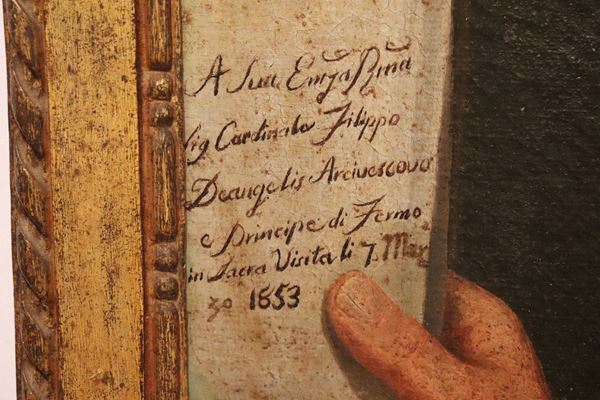 A Sua Emz̃a Rm̃a
Sig Cardinale Filippo
Deangelis Arcivescovo
e Principe di Fermo
in Sacra Visita li 7 Mar
zo 1853